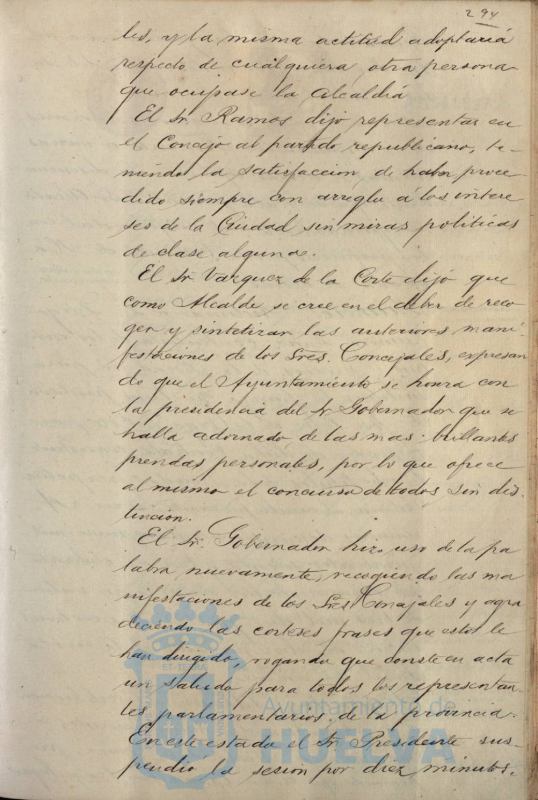 294
les, y la misma actitud adoptaria
respecto de cualquiera otra persona
que ocupase la Alcaldia
El Sr. Ramos dijo representar en
el Concejo al partido republicano, te-
niendo la satisfaccion de haber proce-
dido siempre con arreglo á los intere
ses de la Ciudad sin miras politicas
de clase alguna.
El Sr. Vazquez de la Corte dijo que
como Alcalde se cree en el deber de reco
ger y sintetizar las anteriores mani
festaciones de los Sres. Concejales, expresan
do que el Ayuntamiento se honra con
la presidencia del Sr Gobernador que se
halla adornado de las mas brillantes
prendas personales, por lo que ofrece
al mismo el concurso de todos sin dis-
tincion.
El Sr. Gobernador hizo uso de la pa
labra nuevamente, recogiendo las ma
nifestaciones de los Sres Concejales y agra
deciendo las corteses frases que estos le
han dirigido, rogando que conste en acta
un saludo para todos los representan-
tes parlamentarios de la provincia.
En este estado el Sr. Presidente sus-
pendio la sesion por diez minutos.
Ayuntamiento de
HUELVA